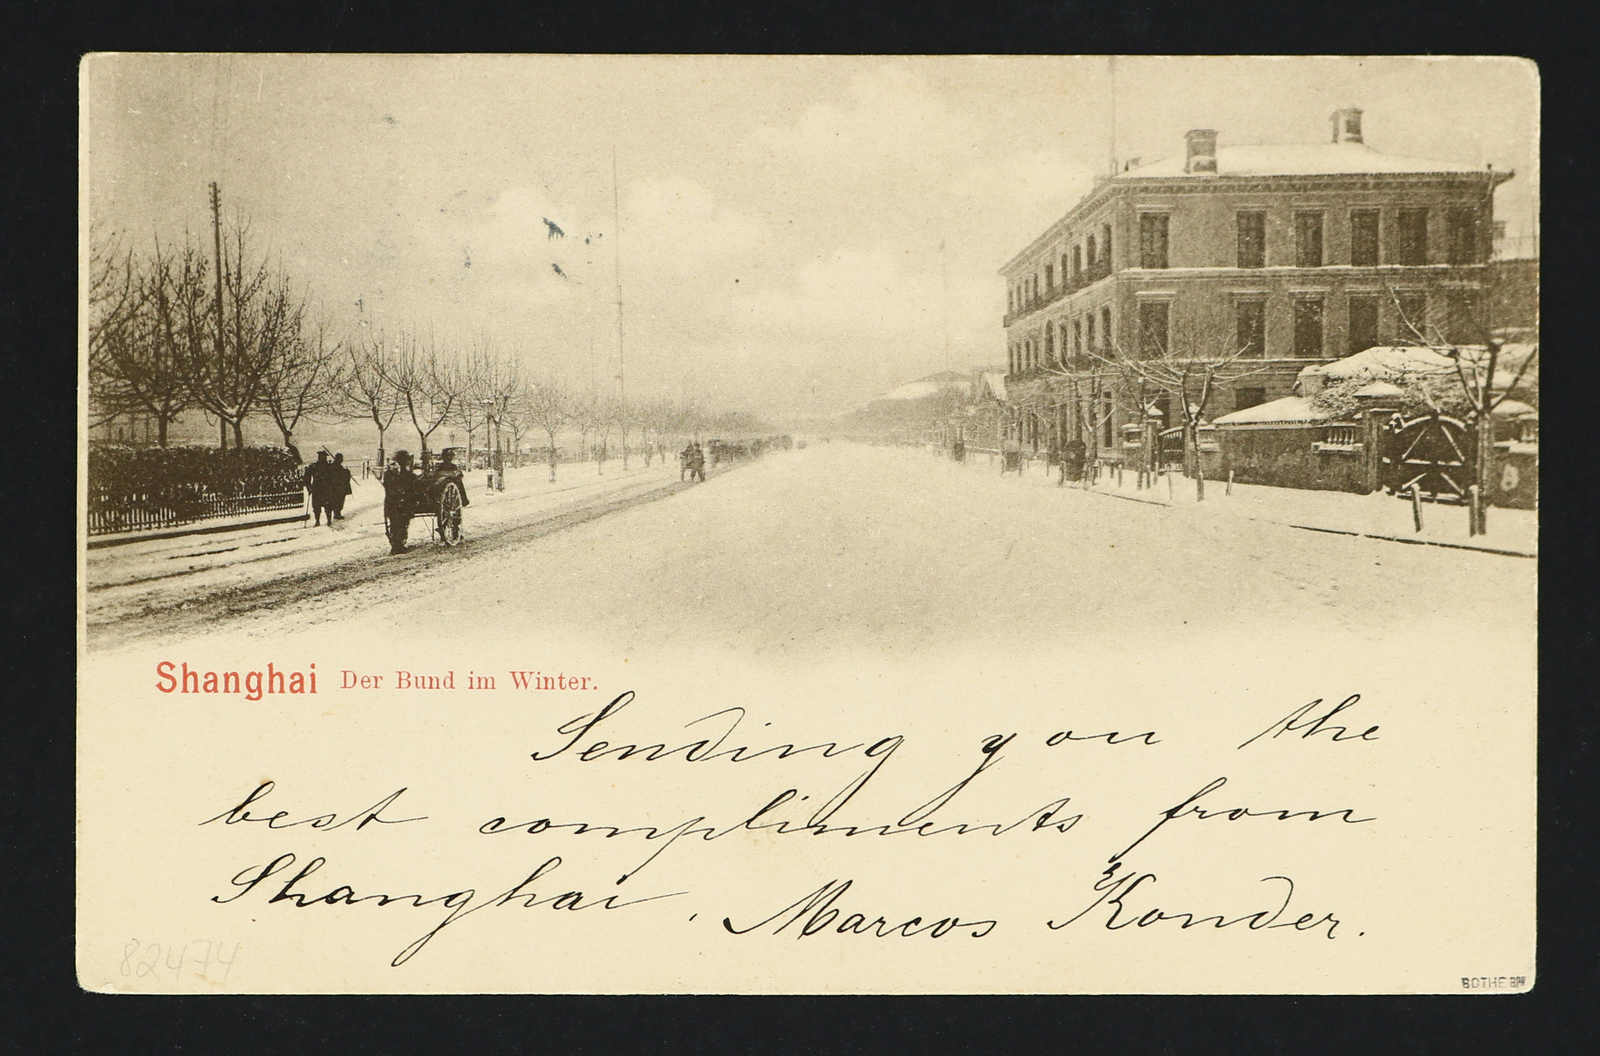 Shanghai Der Bund im Winter.
Sending you the
best compliments from
Shanghai. Marcos Konder.
82474
BOTHE BPP